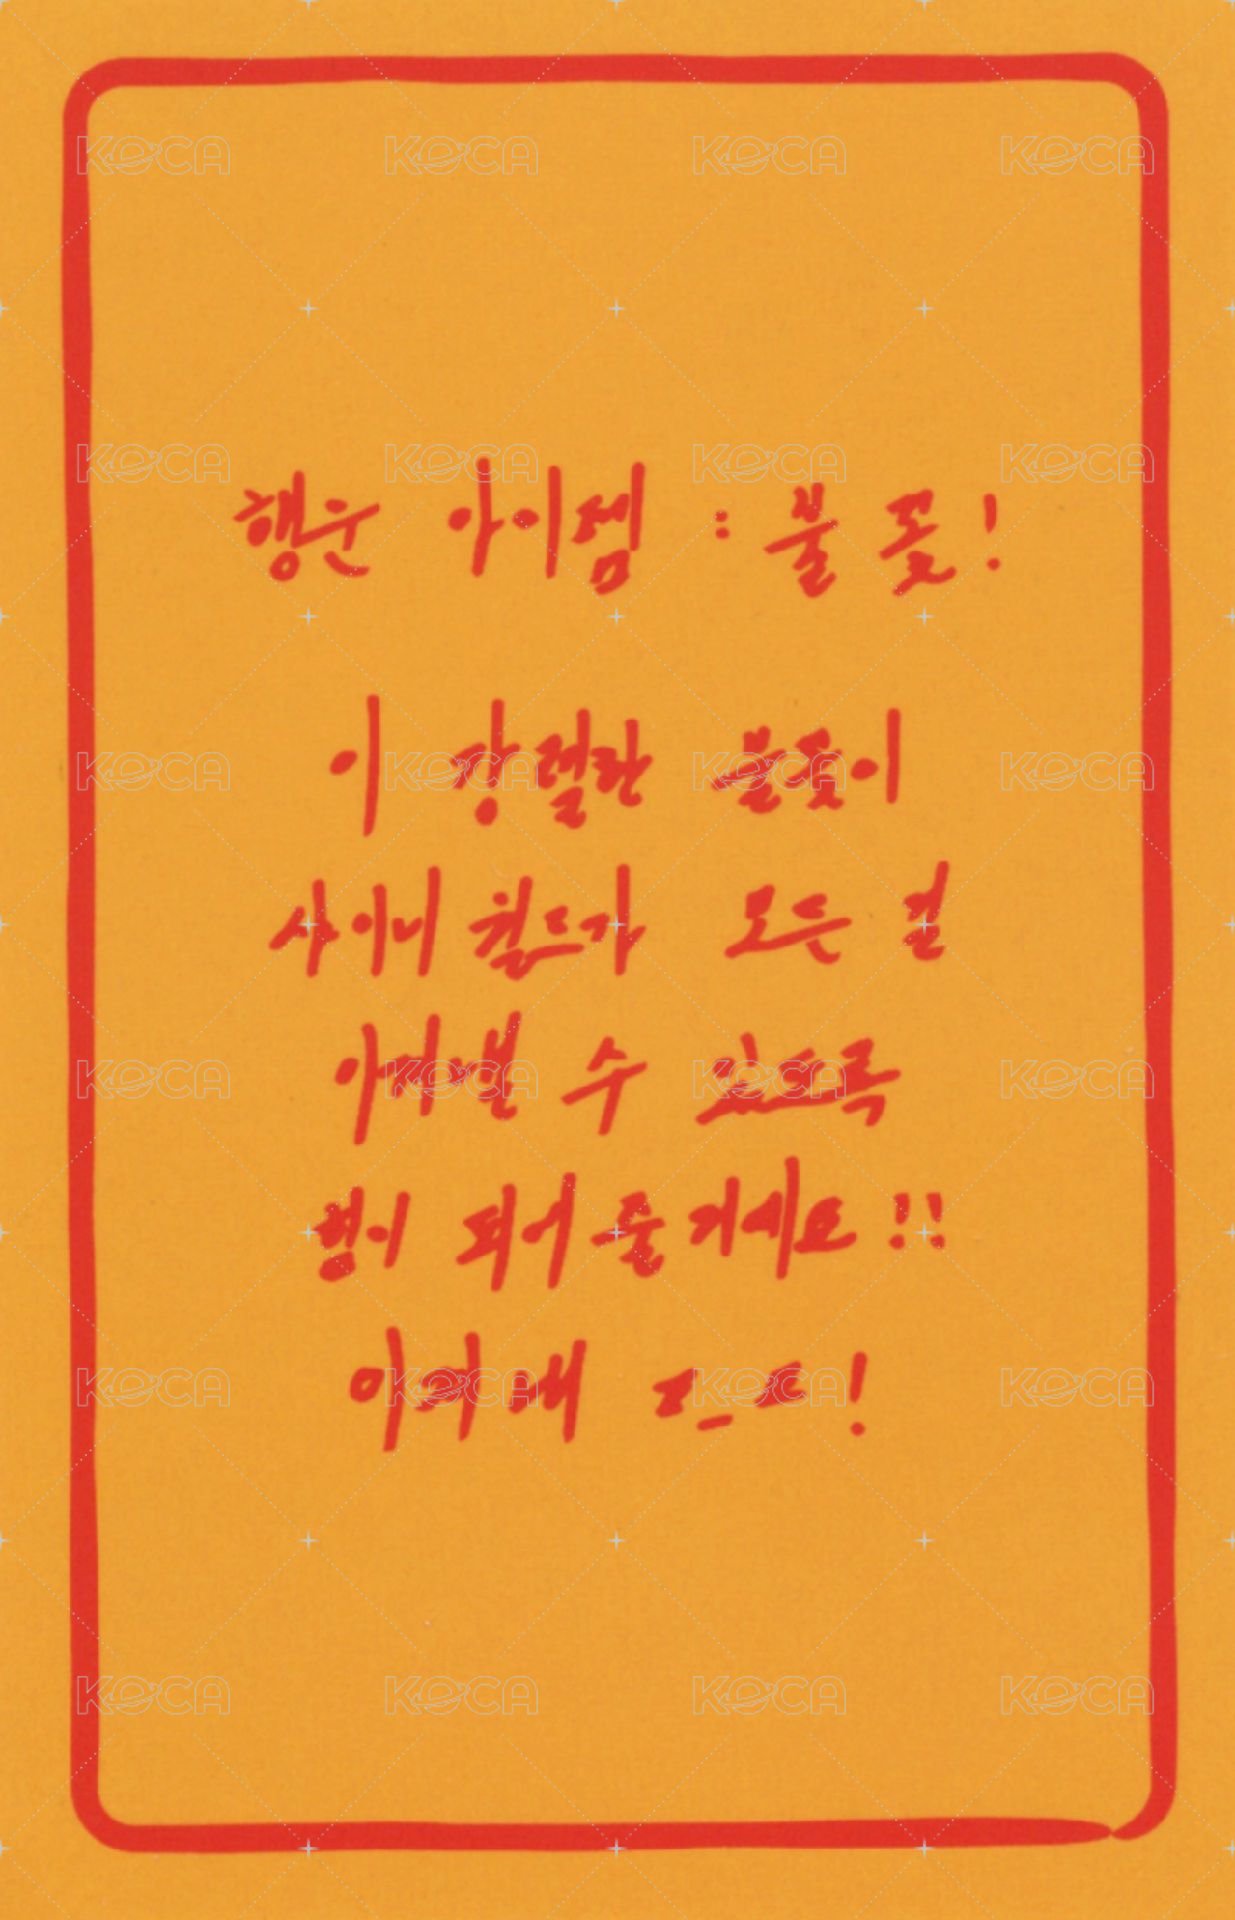 행운 아이템 : 불꽃!
이 강렬한 불꽃이
샤이니 월드가 모든 걸
이겨낼 수 있도록
힘이 되어 줄 거에요!!
이겨내